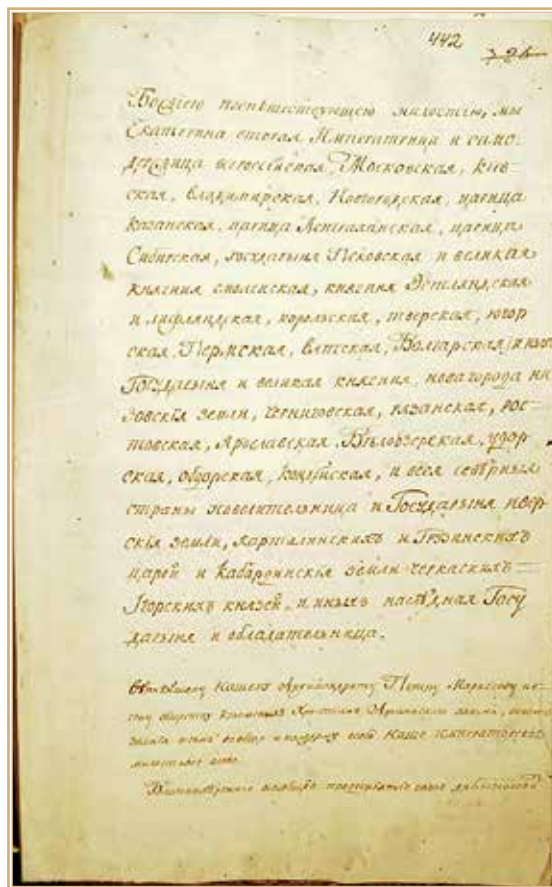 442
Божіею поспѣшествующею милостію, мы
Екатерина вторая Императрица и само-
держица всероссійская, Московская, Кіев-
ская, владимирская, Новогородская, царица
казанская, царица Астраханская, царица
Сибирская, государыня Псковская и великая
княгиня смоленская, княгиня Эстляндская
и лифляндская, корельская, тверская, югор
ская, Пермская, вятская, Болгарская и иныхъ
Государыня и великая княгиня, новагорода ни
зовскія земли, черниговская, рязанская, рос-
товская, Ярославская Бѣлоозерская, удор
ская, обдорская, кондійская, и всея сѣверныя
страны повелительница и Государыня ивер
скія земли, карталинскихъ и Грузинскихъ
царей и кабардинскія земли черкаскихъ
Игорскихъ князей, и иныхъ наслѣдная Госу
дарыня и обладательница.
нашему Архимандриту Петру Маркосову
обществу Крымскихъ Христианъ Армянскаго закона,
наше императорское
милостивое слово.